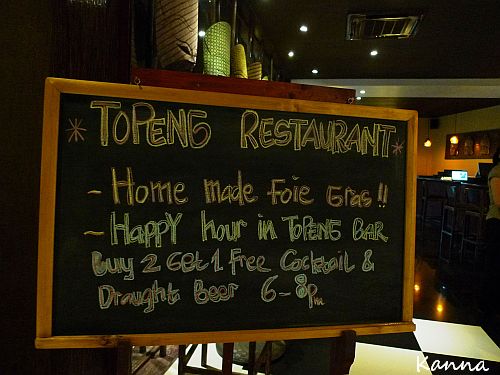 * TOPENG RESTAURANT *
- Home made Foie Gras !!
- Happy hour in TOPENG BAR
Buy 2 Get 1 Free Cocktail &
Draught Beer 6-8pm
Kanna